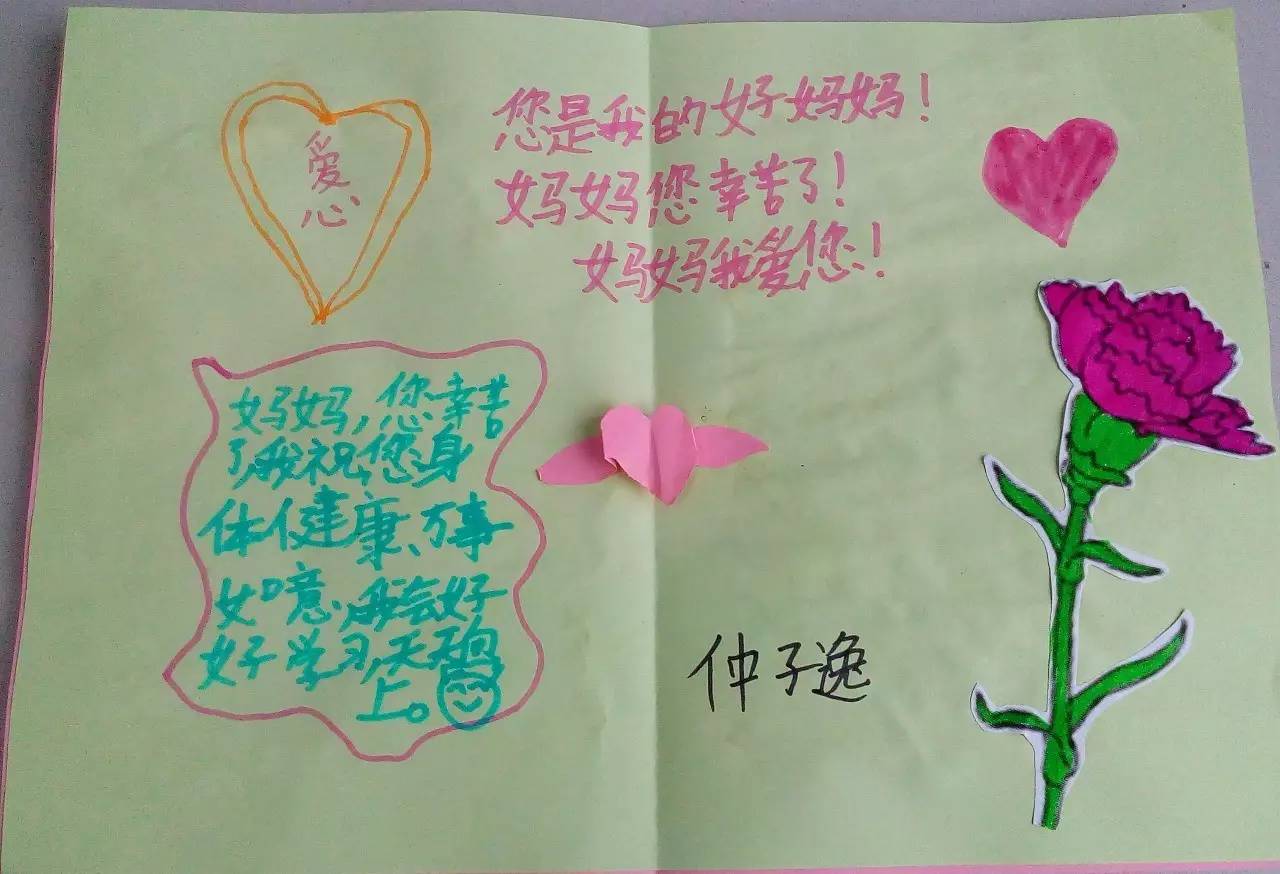 爱
心
您是我的好妈妈！
妈妈您幸苦了！
妈妈我爱您！
妈妈,您幸苦
了,我祝您身
体健康、万事
如意,我会好
好学习,天天向
上。
仲子逸